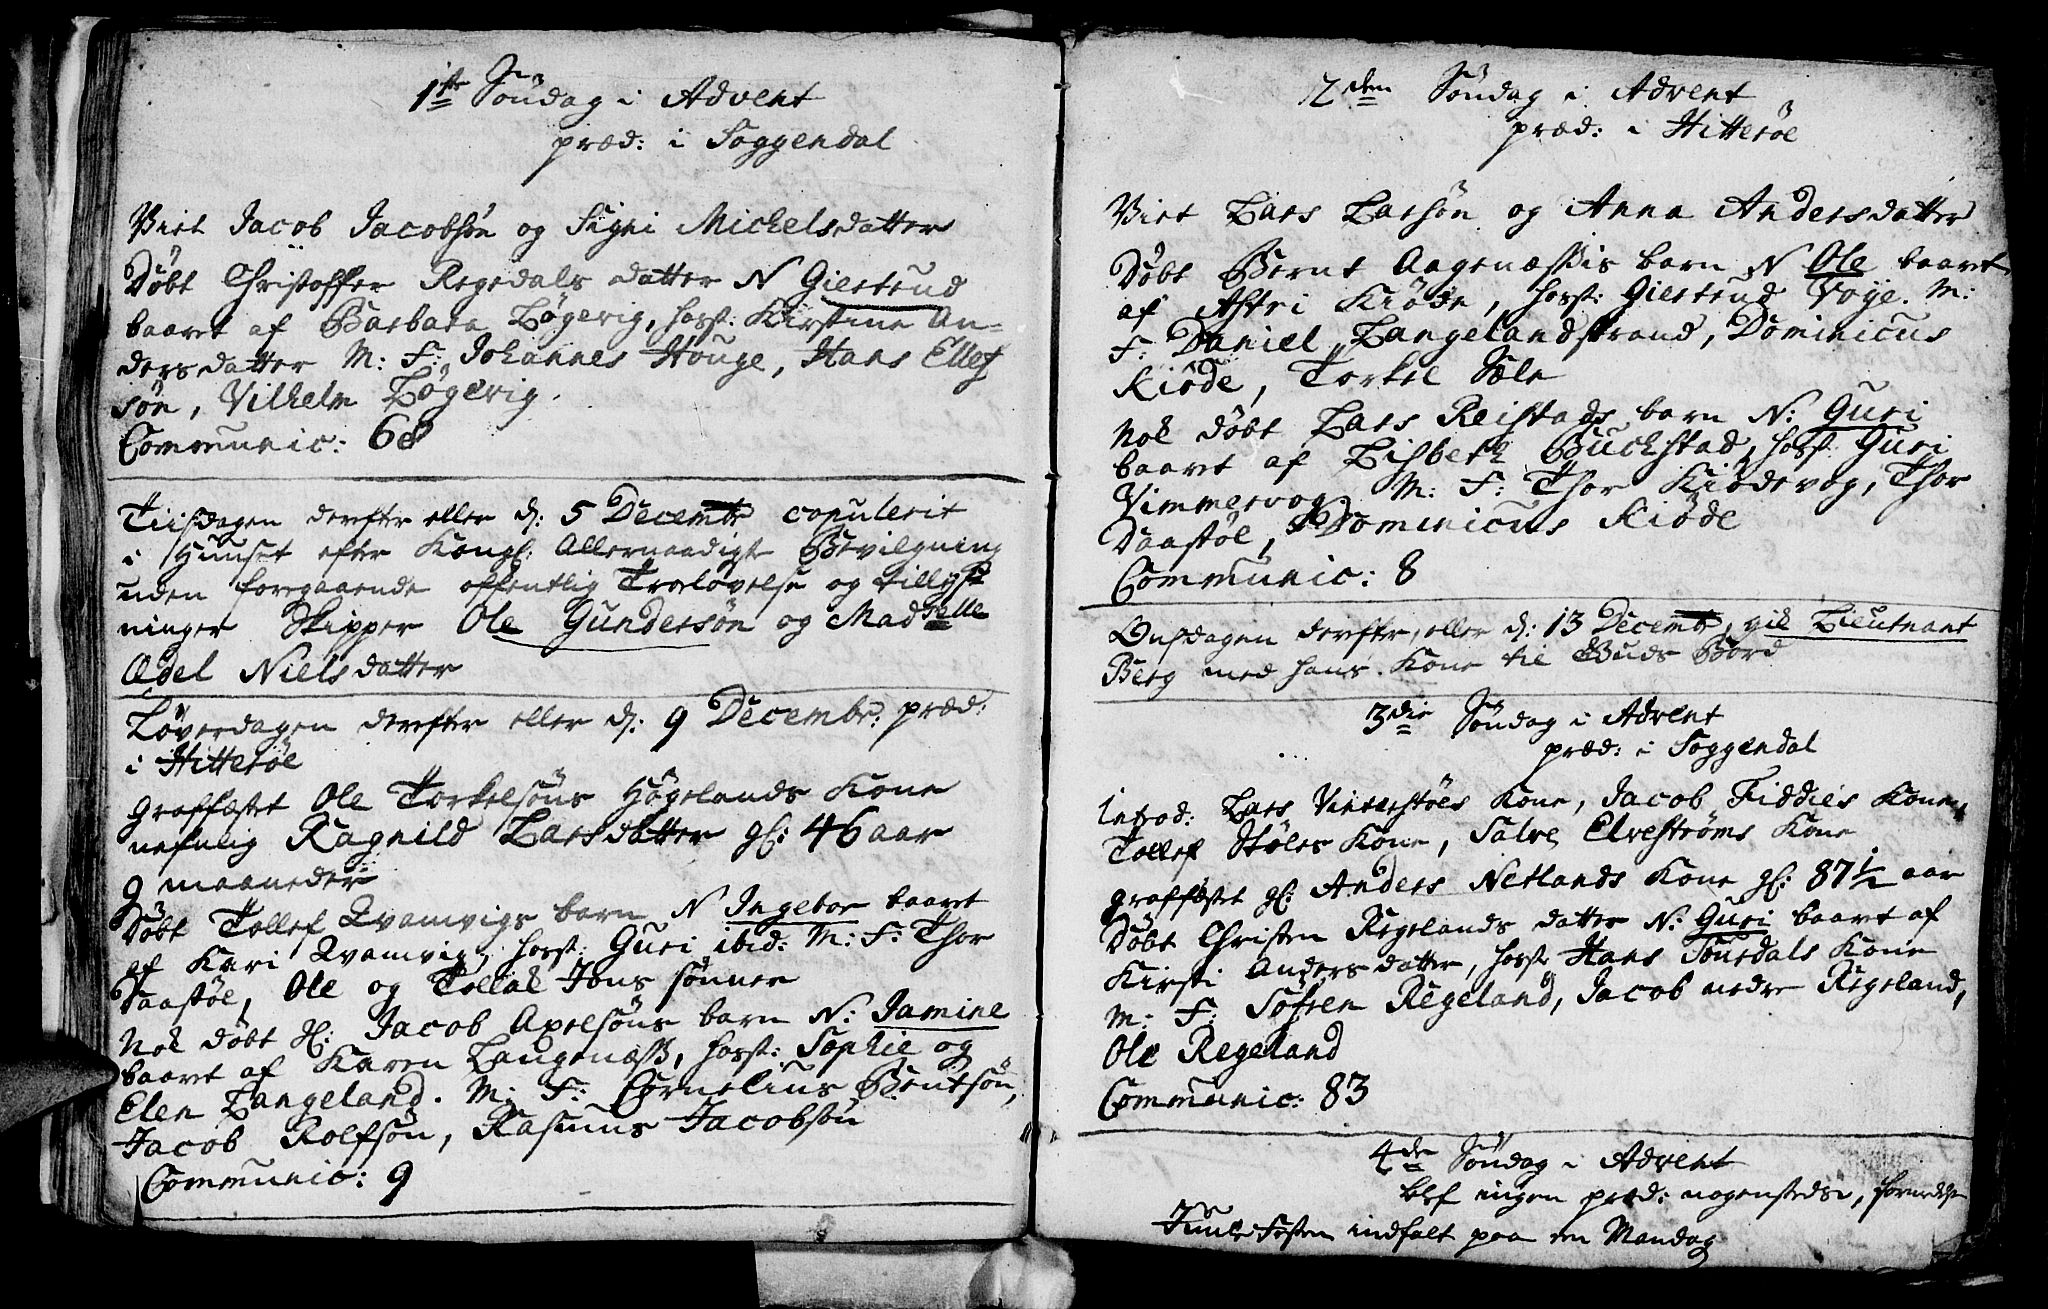 1ste Søndag i Advent
præd: i Soggendal
Viet Jacob Jacobsøn og Signi Michelsdatter
Døbt Christoffer Regedals datter N Giertrud
baaret af Barbara Løgevig, hosst: Kirstine An-
dersdatter M: F: Johannes Houge, Hans Ellef
søn, Vilhelm Løgevig.
Communic: 68
Tiisdagen derefter eller d: 5 Decembr copulerit
i Huuset efter Kongl: Allernaadigst Bevilgning
uden foregaaende offentlig Troelovelse og tillys
ninger Skipper Ole Gundersøn og Madselle
Ædel Nielsdatter
Løverdagen derefter eller d: 9 Decembr: præd:
i Hitterøe
Graffæstet Ole Torkelsøns Høgelands Kone
nefnlig Ragnild Larsdatter gl: 46 aar
9 maaneder
Døbt Tollef Qvamvigs barn N Ingebor baaret
af Kari Qvamvig, hosst: Guri ibid: M: F: Thor
Daastøl, Ole og Tollak Jons sønner
Nok døbt gl: Jacob Apelsøns barn N: Jamine
baaret af Karen Langenæss, hosst: Sophie og
Elen Langeland. M: F: Cornelius Bentsøn,
Jacob Rolfsøn, Rasmus Jacobsøn
Communic: 9
2den Søndag i Advent
præd: i Hitterøe
Viet Lars Larsøn og Anna Andersdatter
Døbt Bernt Aagenæssis barn N Ole baaret
af Astri Kiøde, hosst: Giertrud Voye. M:
F: Daniel Langelandstrand, Dominicus
Kiøde, Torkel Sæle
Nok døbt Lars Reistads barn N: Guri
baaret af Lisbeth Buckstad, hosst: Guri
Vimmervog M: F: Thor Kiødevog, Thor
Daastøl, Dominicus Kiøde
Communic: 8
Onsdagen derefter, eller d: 13 Decembr, gik Lieutnant
Berg med hans Kone til Guds Bord
3die Søndag i Advent
præd: i Soggendal
Introd: Lars Kone, Jacob Fiddies Kone,
Tollef Støles Kone, Salve Elvestrøms Kone
graffæstet gl: Anders Netlands Kone gl: 87 1/2 aar
Døbt Christen Regelands datter N: Guri baaret af
Kirsti Andersdatter, hosst: Hans Kone
M: F: Søfren Regeland, Jacob nedre Regeland,
Ole Regeland
Communic: 83
4de Søndag i Advent
blef ingen præd: nogensteds, formedelst
Juule Festen indfalt paa en Mandag